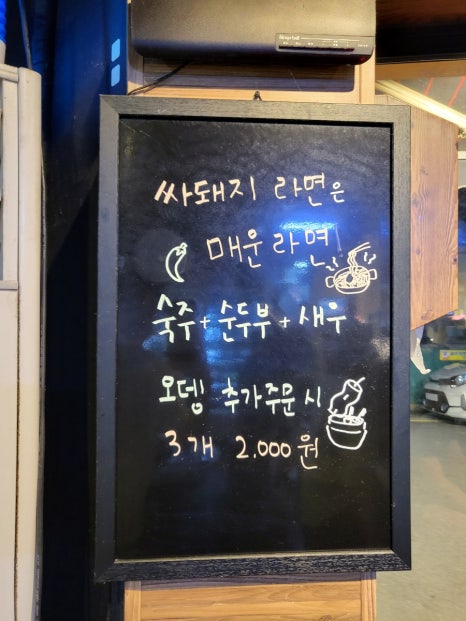 싸돼지 라면은
매운라면
숙주+순두부+새우
오뎅 추가주문 시
3개 2.000원